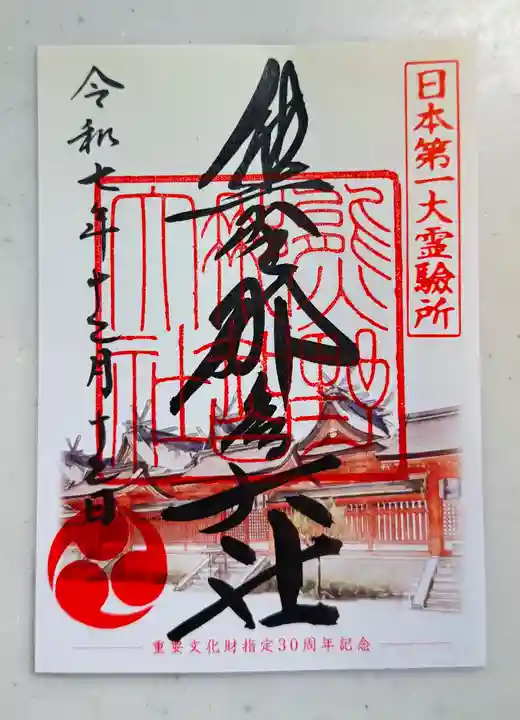 日本第一大霊験所
熊野那智大社
令和七年十二月丁乙日
熊野
那智
大社
重要文化財指定30周年記念